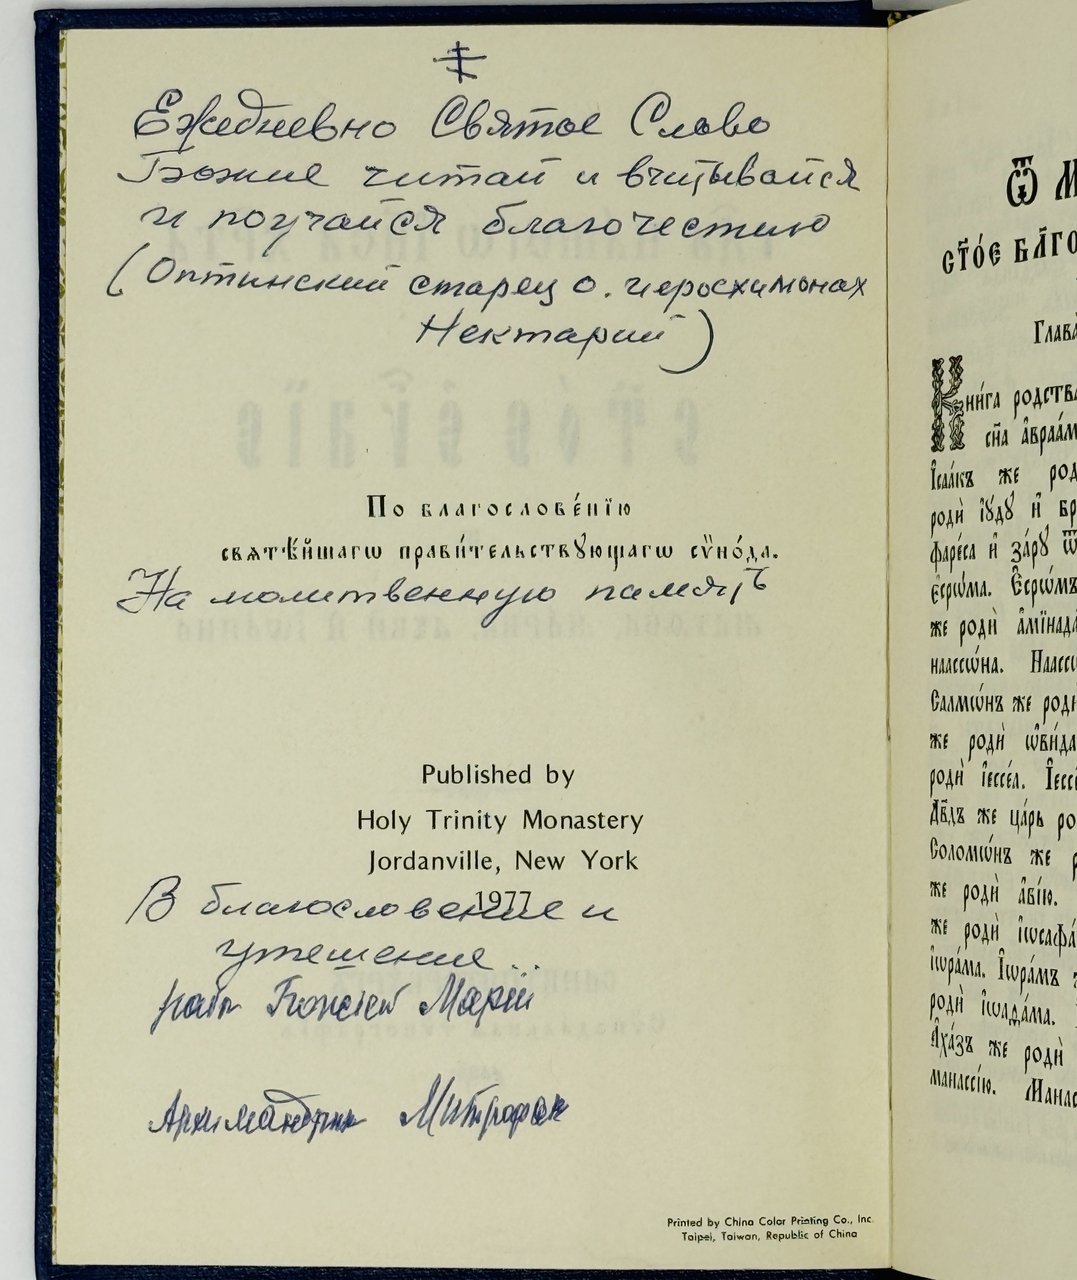 Ежедневно Святое Слово
Божие читай и вчитывайся
и поучайся благочестию
(Оптинский старец о. иеросхимонах
Нектарий)
По благослове́нїю
свѧтѣ́йшагѡ прави́тельствꙋющагѡ сѷно́да.
На молитвенную память
Published by
Holy Trinity Monastery
Jordanville, New York
1977
В благословение и
утешение
рабе Божией Марiи
Архимандрит Митрофан
Printed by China Color Printing Co., Inc.
Taipei, Taiwan, Republic of China
Ѿ М
ст҃о́е бл҃го
Глава
Кни́га родства
сн҃а а҆враа́м
І҆саа́къ же род
родѝ і҆ꙋ́дꙋ и҆ бр
фаре́са и҆ за́рꙋ ѿ
є҆срѡ́ма. Є҆срѡ́мъ
же родѝ а҆мїнада́
наассѡ́на. Наассѡ
Салмѡ́нъ же роди
же родѝ ѡ҆ви́да
родѝ і҆ессе́а. І҆ессе
Дв҃дъ же ца́рь ро
Соломѡ́нъ же р
же родѝ а҆ві́ю.
же родѝ і҆ѡсафа́
і҆ѡра́ма. І҆ѡра́мъ
родѝ і҆ѡаѳа́ма.
А҆ха́зъ же родѝ
манассі́ю. Манас